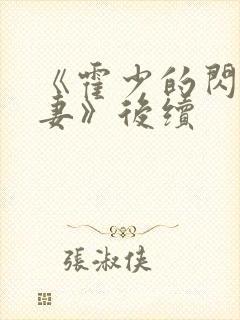 《霍少的閃
妻》後續
張淑俠